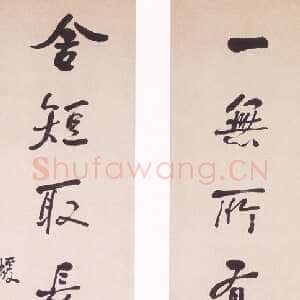 一無所有
舍短取長
Shufawang.CN